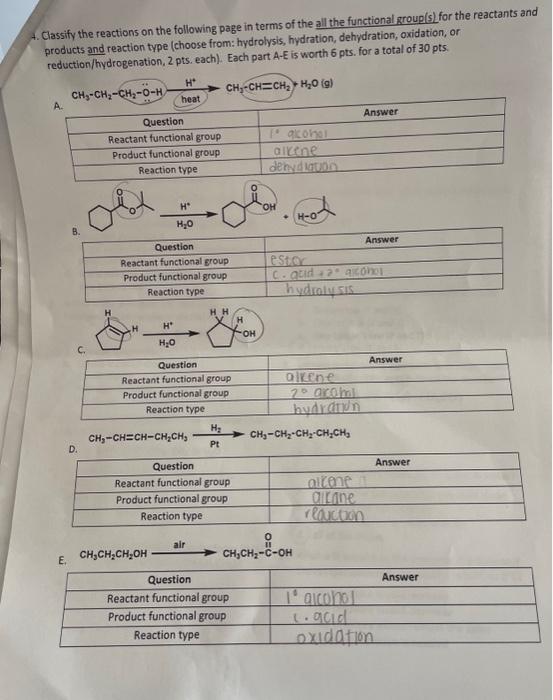 4. Classify the reactions on the following page in terms of the all the functional group(s) for the reactants and
products and reaction type (choose from: hydrolysis, hydration, dehydration, oxidation, or
reduction/hydrogenation, 2 pts. each). Each part A-E is worth 6 pts. for a total of 30 pts.
A. CH₃-CH₂-CH₂-Ö-H H⁺ heat CH₃-CH=CH₂ + H₂O (g)
Question Answer
Reactant functional group 1° alcohol
Product functional group alkene
Reaction type dehydration
B. O O H⁺ H₂O O OH + H-O
Question Answer
Reactant functional group ester
Product functional group c. acid + 2° alcohol
Reaction type hydrolysis
C. H H H⁺ H₂O H H H OH
Question Answer
Reactant functional group alkene
Product functional group 2° alcohol
Reaction type hydration
D. CH₃-CH=CH-CH₂CH₃ H₂ Pt CH₃-CH₂-CH₂-CH₂CH₃
Question Answer
Reactant functional group alkene
Product functional group alkane
Reaction type reduction
E. CH₃CH₂CH₂OH air CH₃CH₂-C-OH O
Question Answer
Reactant functional group 1° alcohol
Product functional group c. acid
Reaction type oxidation